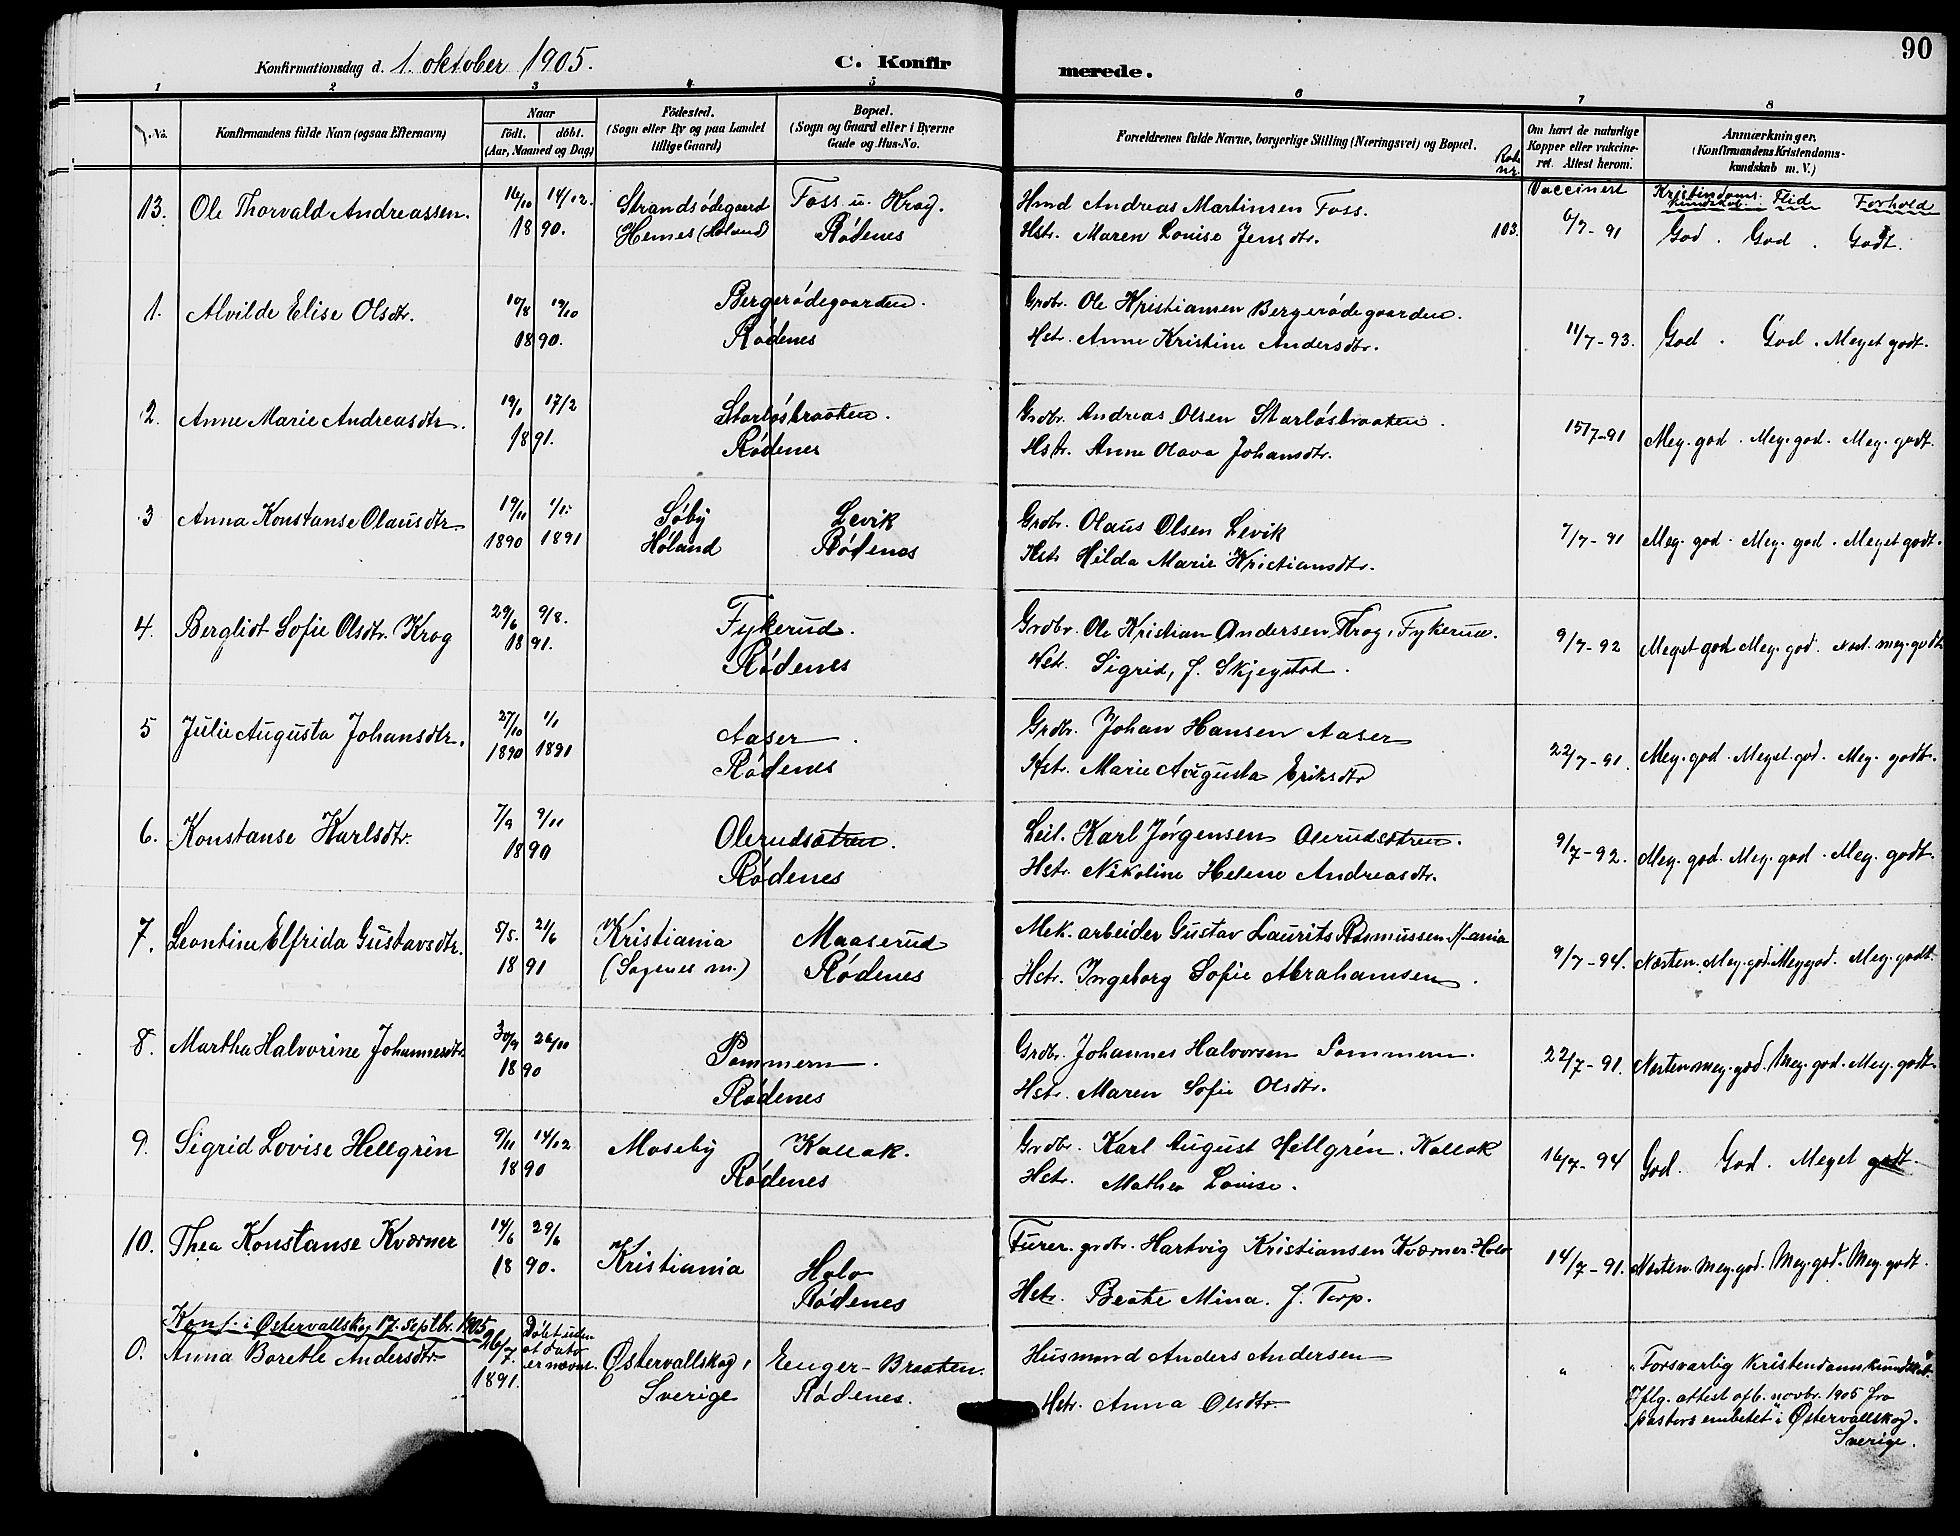 90
Konfirmationsdag d. 1. oktober 1905. C. Konfirmerede.
1 2 3 4 5 6 7 8
No. Konfirmandens fulde Navn (ogsaa Efternavn) Naar födt. döbt. (Aar, Maaned og Dag) Födested. (Sogn eller By og paa Landet tillige Gaard) Bopæl. (Sogn og Gaard eller i Byerne Gade og Hus-No. Forældrenes fulde Navne, borgerlige Stilling (Næringsvei) og Bopæl. Om havt de naturlige Kopper eller vaccineret. Attest herom. Anmærkninger. (Konfirmandens Kristendomskundskab m. V.)
Vaccinert Kristendoms kundskab Flid Forhold
13. Ole Thorvald Andreassen. 16/10 14/12. Strandsödegaard Foss u. Krog. Hmd Andreas Martinsen Foss.
1890. Hemes (Høland) Rödenes Hstr. Maren Louise Jensdtr. 103. 6/7-91 God. God. Godt.
1. Alvilde Elise Olsdtr. 10/8 19/10 Bergerödegaarden. Grdbr. Ole Kristiansen Bergerödegaarden.
1890. Rödenes Hstr. Anne Kristine Andersdtr. 11/7-93. God. God. Meget godt.
2. Anne Marie Andreasdtr. 19/1 17/2 Starlösbraaten. Grdbr. Andreas Olsen Starlösbraaten.
1891. Rödenes Hstr. Anne Olava Johansdtr. 15/7-91 Meg. god. Meg. god. Meg. godt.
3 Anna Konstanse Olausdtr. 19/11 Söby Levik Grdbr. Olaus Olsen Levik
1890 1891 Höland Rödenes Hstr. Hilda Marie Kristiansdtr. 7/7-91 Meg. god. Meg. god. Meget godt.
4. Bergliot Sofie Olsdtr. Krog 29/6 9/8. Fykerud. Grdbr. Ole Kristian Andersen Krog, Fykerud.
1891. Rödenes Hstr. Sigrid, f. Skjegstad. 9/7-92 Meget god Meg. god. Næst. meg. godt
5 Julie Augusta Johansdtr. 27/10 1/1 Aaser. Grdbr. Johan Hansen Aaser
1890 1891 Rödenes Hstr. Marie Augusta Eriksdtr 22/7-91. Meg. god. Meget god. Meg. godt.
6. Konstanse Karlsdtr. 7/9 9/11 Olerudsætren. Leil. Karl Jörgensen Olerudsætren.
1890 Rödenes Hstr. Nikoline Helene Andreasdtr. 9/7-92. Meg. god. Meg. god. Meg. godt.
7. Leontine Elfrida Gustavsdtr. 5/5. 21/6 Kristiania Maaserud Mek. arbeider Gustav Laurits Rasmussen Kr.ania
1891 (Sagenes m.) Rödenes Hstr. Ingeborg Sofie Abrahamsen. 9/7-94. Næsten. Meg. god. Meg god. Meg. godt.
8. Martha Halvorine Johannesdtr. 30/9 26/10 Sommern. Grdbr. Johannes Halvorsen Sommern.
1890 Rödenes Hstr. Maren Sofie Olsdtr. 22/7-91. Næsten meg. god. Meg. god. Meg. godt.
9. Sigrid Lovise Hellgrén 9/11 14/12 Moseby Kollak. Grdbr. Karl August Hellgrén. Kollak
1890 Rödenes Hstr. Mathea Lovise. 16/7-94 God. God. Meget godt.
10. Thea Konstanse Kværner 14/6 29/6 Kristiania Holo Furer. grdbr. Hartvig Kristiansen Kværner. Holo
1890. Rödenes Hstr. Beate Mina. f. Torp. 14/7-91. Næsten. Meg. god. Meg. god. Meg. godt.
Konf. i Östervallskog 17. septbr. 1905
0. Anna Borethe Andersdtr. 26/7. 1891. Döbt uden at dato er nævnt. Östervallskog, Sverige Enger-Braaten. Rödenes. Husmand Anders Andersen
Hstr. Anna Olsdtr. " Forsvarlig Kristendomskundskab.
Iflg. attest af 6. novbr. 1905 fra
pastorsembetet i Östervallskog.
Sverige.